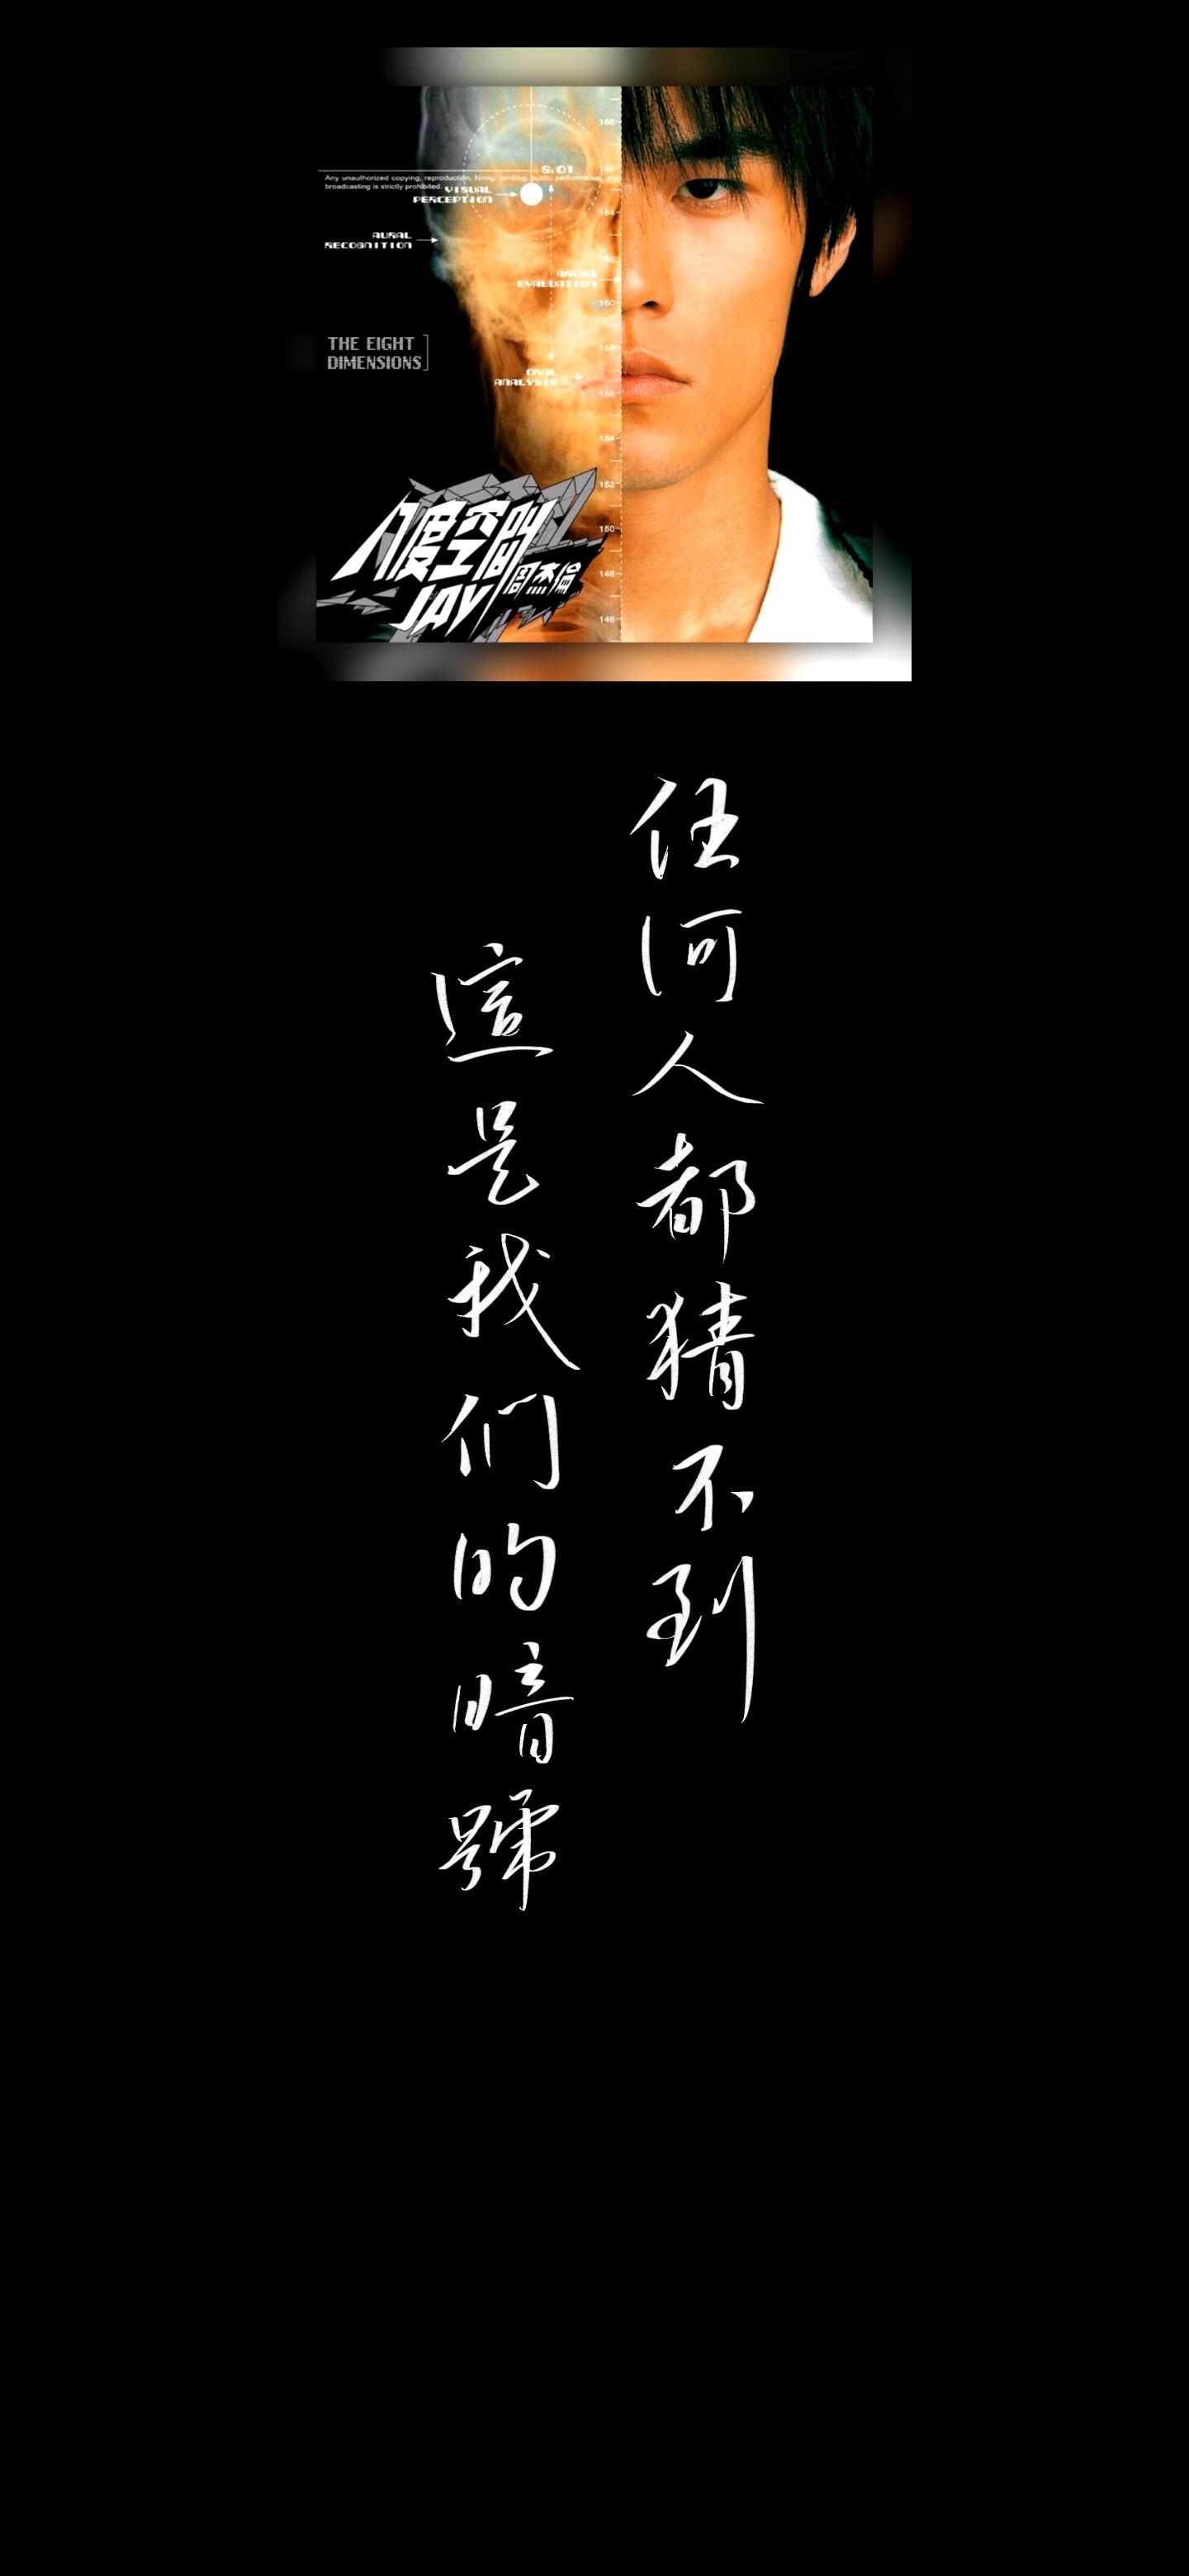 5.01
Any unauthorized copying, reproduction, hiring, lending, public performance, and
broadcasting is strictly prohibited.
VISUAL
PERCEPTION
AURAL
RECOGNITION
AROMA
EVALUATION
ORAL
ANALYSIS
168
166
164
162
160
158
156
154
152
150
148
146
THE EIGHT
DIMENSIONS
八度空間
周杰倫
JAY
任何人都猜不到
這是我们的暗號